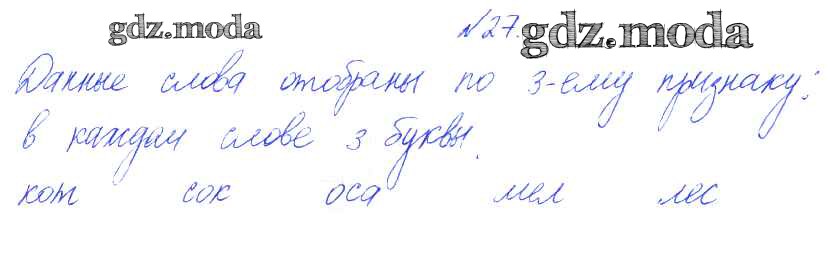 gdz.moda №27. gdz.moda
Данные слова отобраны по 3-ему признаку:
в каждом слове 3 буквы.
кот сок оса мел лес